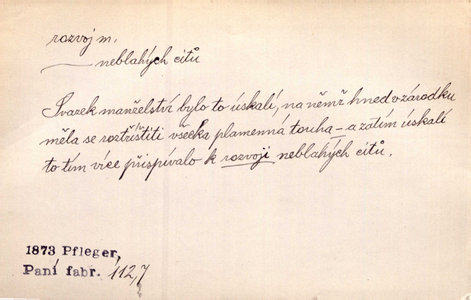 rozvoj m.
—— neblahých citů
Svazek manželství bylo to úskalí, na němž hned v zárodku
měla se roztříštiti všecka plamenná touha – a zatím úskalí
to tím více přispívalo k rozvoji neblahých citů.
1873 Pfleger,
Paní fabr. 112,7